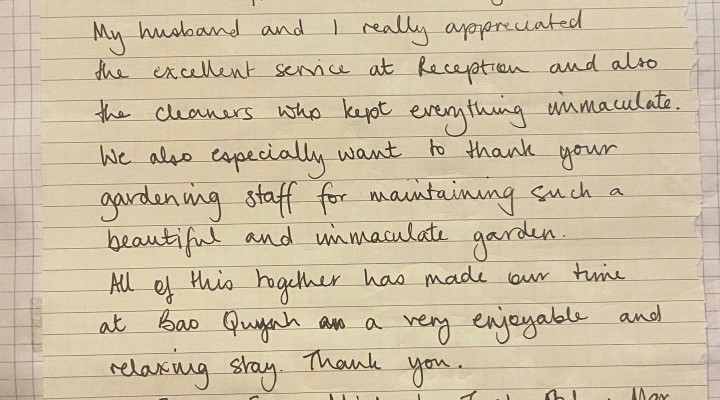 My husband and I really appreciated
the excellent service at Reception and also
the cleaners who kept everything immaculate.
We also especially want to thank your
gardening staff for maintaining such a
beautiful and immaculate garden.
All of this together has made our time
at Bao Quynh a very enjoyable and
relaxing stay. Thank you.